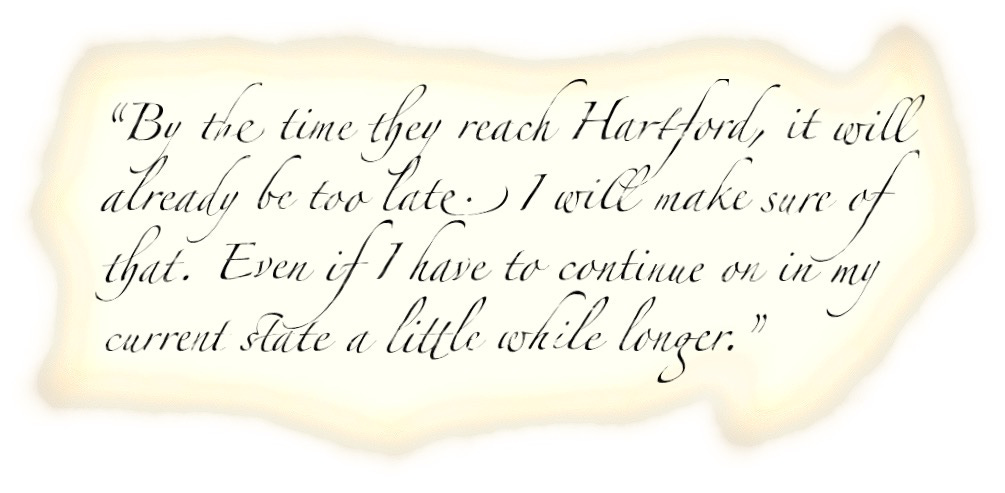 “By the time they reach Hartford, it will
already be too late. I will make sure of
that. Even if I have to continue on in my
current state a little while longer.”